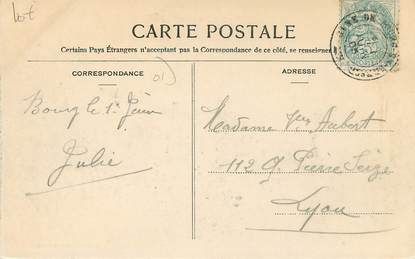 lot
CARTE POSTALE
Certains Pays Étrangers n'acceptant pas la Correspondance de ce côté, se renseigner
CORRESPONDANCE
01)
ADRESSE
Bourg le 1er Juin
Julie
Madame Aubert
112 q Pierre Scize
Lyon